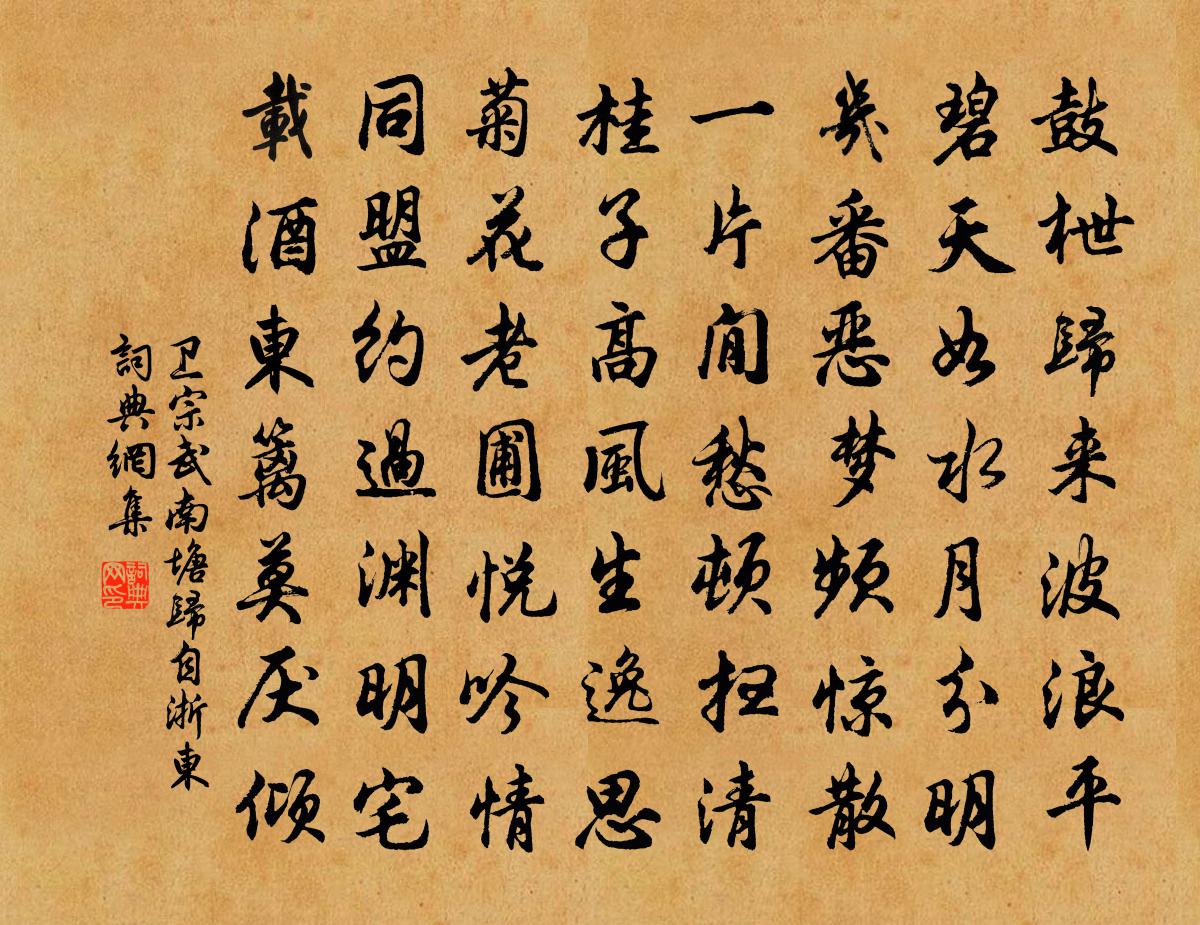 鼓枻歸来波浪平
碧天如水月分明
幾番恶梦频惊散
一片閒愁顿扫清
桂子高風生逸思
菊花老圃悦吟情
同盟约過渊明宅
載酒東篱莫厌倾
卫宗武南塘歸自浙東
詞典網集
詞典网印